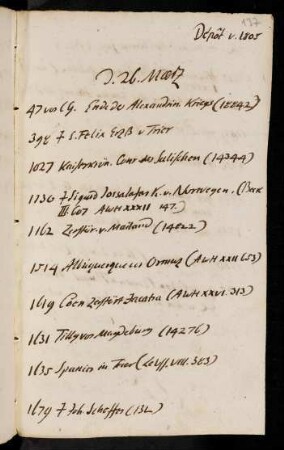 137
Depôt v. 1805
D. 26. Maerz
47 vor CG. Ende des Alexandrin. Kriegs (15542)
398 † S. Felix ErzB v Trier
1027 Kaiserkrön. Conr. des Salischen (14344)
1136 † Sigurd Jorsalafar K. v. Norwegen. (
III. 607 AWH XXXII 147.)
1162 Zerstör. v. Mailand (14522)
1514 Albuquerque in Ormuz (AWH XXII 653)
1619 Coen zerstört Jacatra (AWH XXVI. 313)
1631 Tilly vor Magdeburg (14276)
1635 Spanier in Trier (VIII. 363)
1679 † Joh. Scheffer (132)